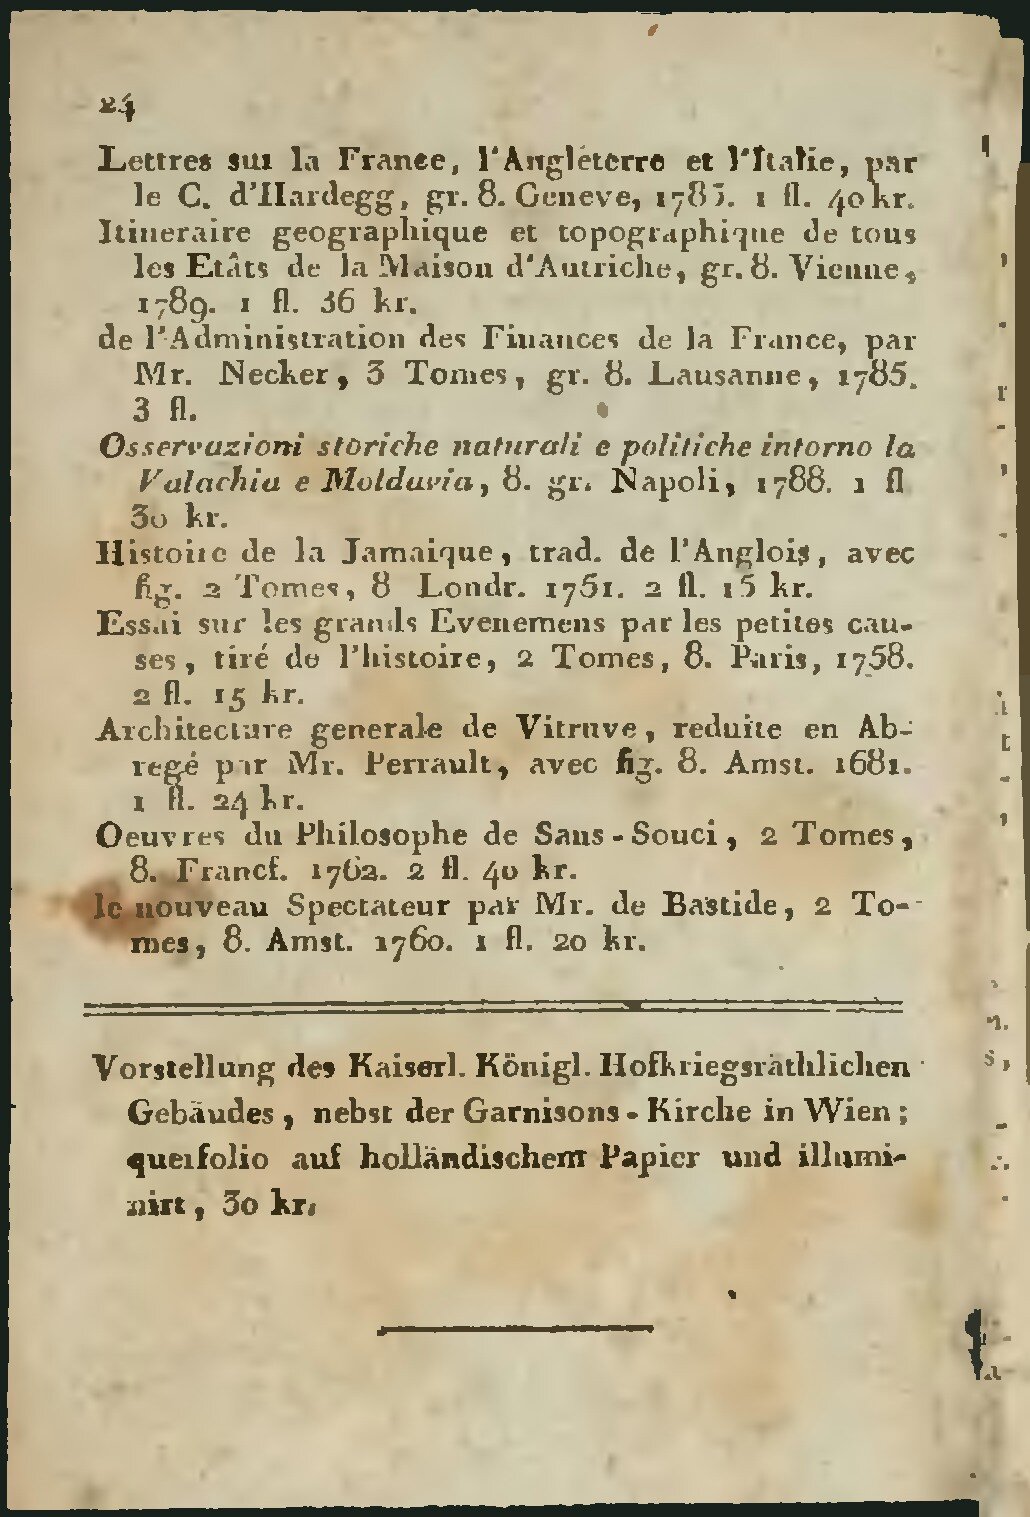 24
Lettres sur la France, l'Angléterre et l'Italie, par
le C. d'Hardegg, gr. 8. Geneve, 1785. 1 fl. 40 kr.
Itineraire geographique et topographique de tous
les Etâts de la Maison d'Autriche, gr. 8. Vienne,
1789. 1 fl. 36 kr.
de l'Administration des Finances de la France, par
Mr. Necker, 3 Tomes, gr. 8. Lausanne, 1785.
3 fl.
Osservazioni storiche naturali e politiche intorno la
Valachia e Moldavia, 8. gr. Napoli, 1788. 1 fl
30 kr.
Histoire de la Jamaique, trad. de l'Anglois, avec
fig. 2 Tomes, 8 Londr. 1751. 2 fl. 15 kr.
Essai sur les grands Evenemens par les petites cau-
ses, tiré de l'histoire, 2 Tomes, 8. Paris, 1758.
2 fl. 15 kr.
Architecture generale de Vitruve, reduite en Ab-
regé par Mr. Perrault, avec fig. 8. Amst. 1681.
1 fl. 24 kr.
Oeuvres du Philosophe de Sans-Souci, 2 Tomes,
8. Francf. 1762. 2 fl. 40 kr.
le nouveau Spectateur par Mr. de Bastide, 2 To-
mes, 8. Amst. 1760. 1 fl. 20 kr.
Vorstellung des Kaiserl. Königl. Hofkriegsräthlichen
Gebäudes, nebst der Garnisons-Kirche in Wien;
querfolio auf holländischem Papier und illumi-
nirt, 30 kr.